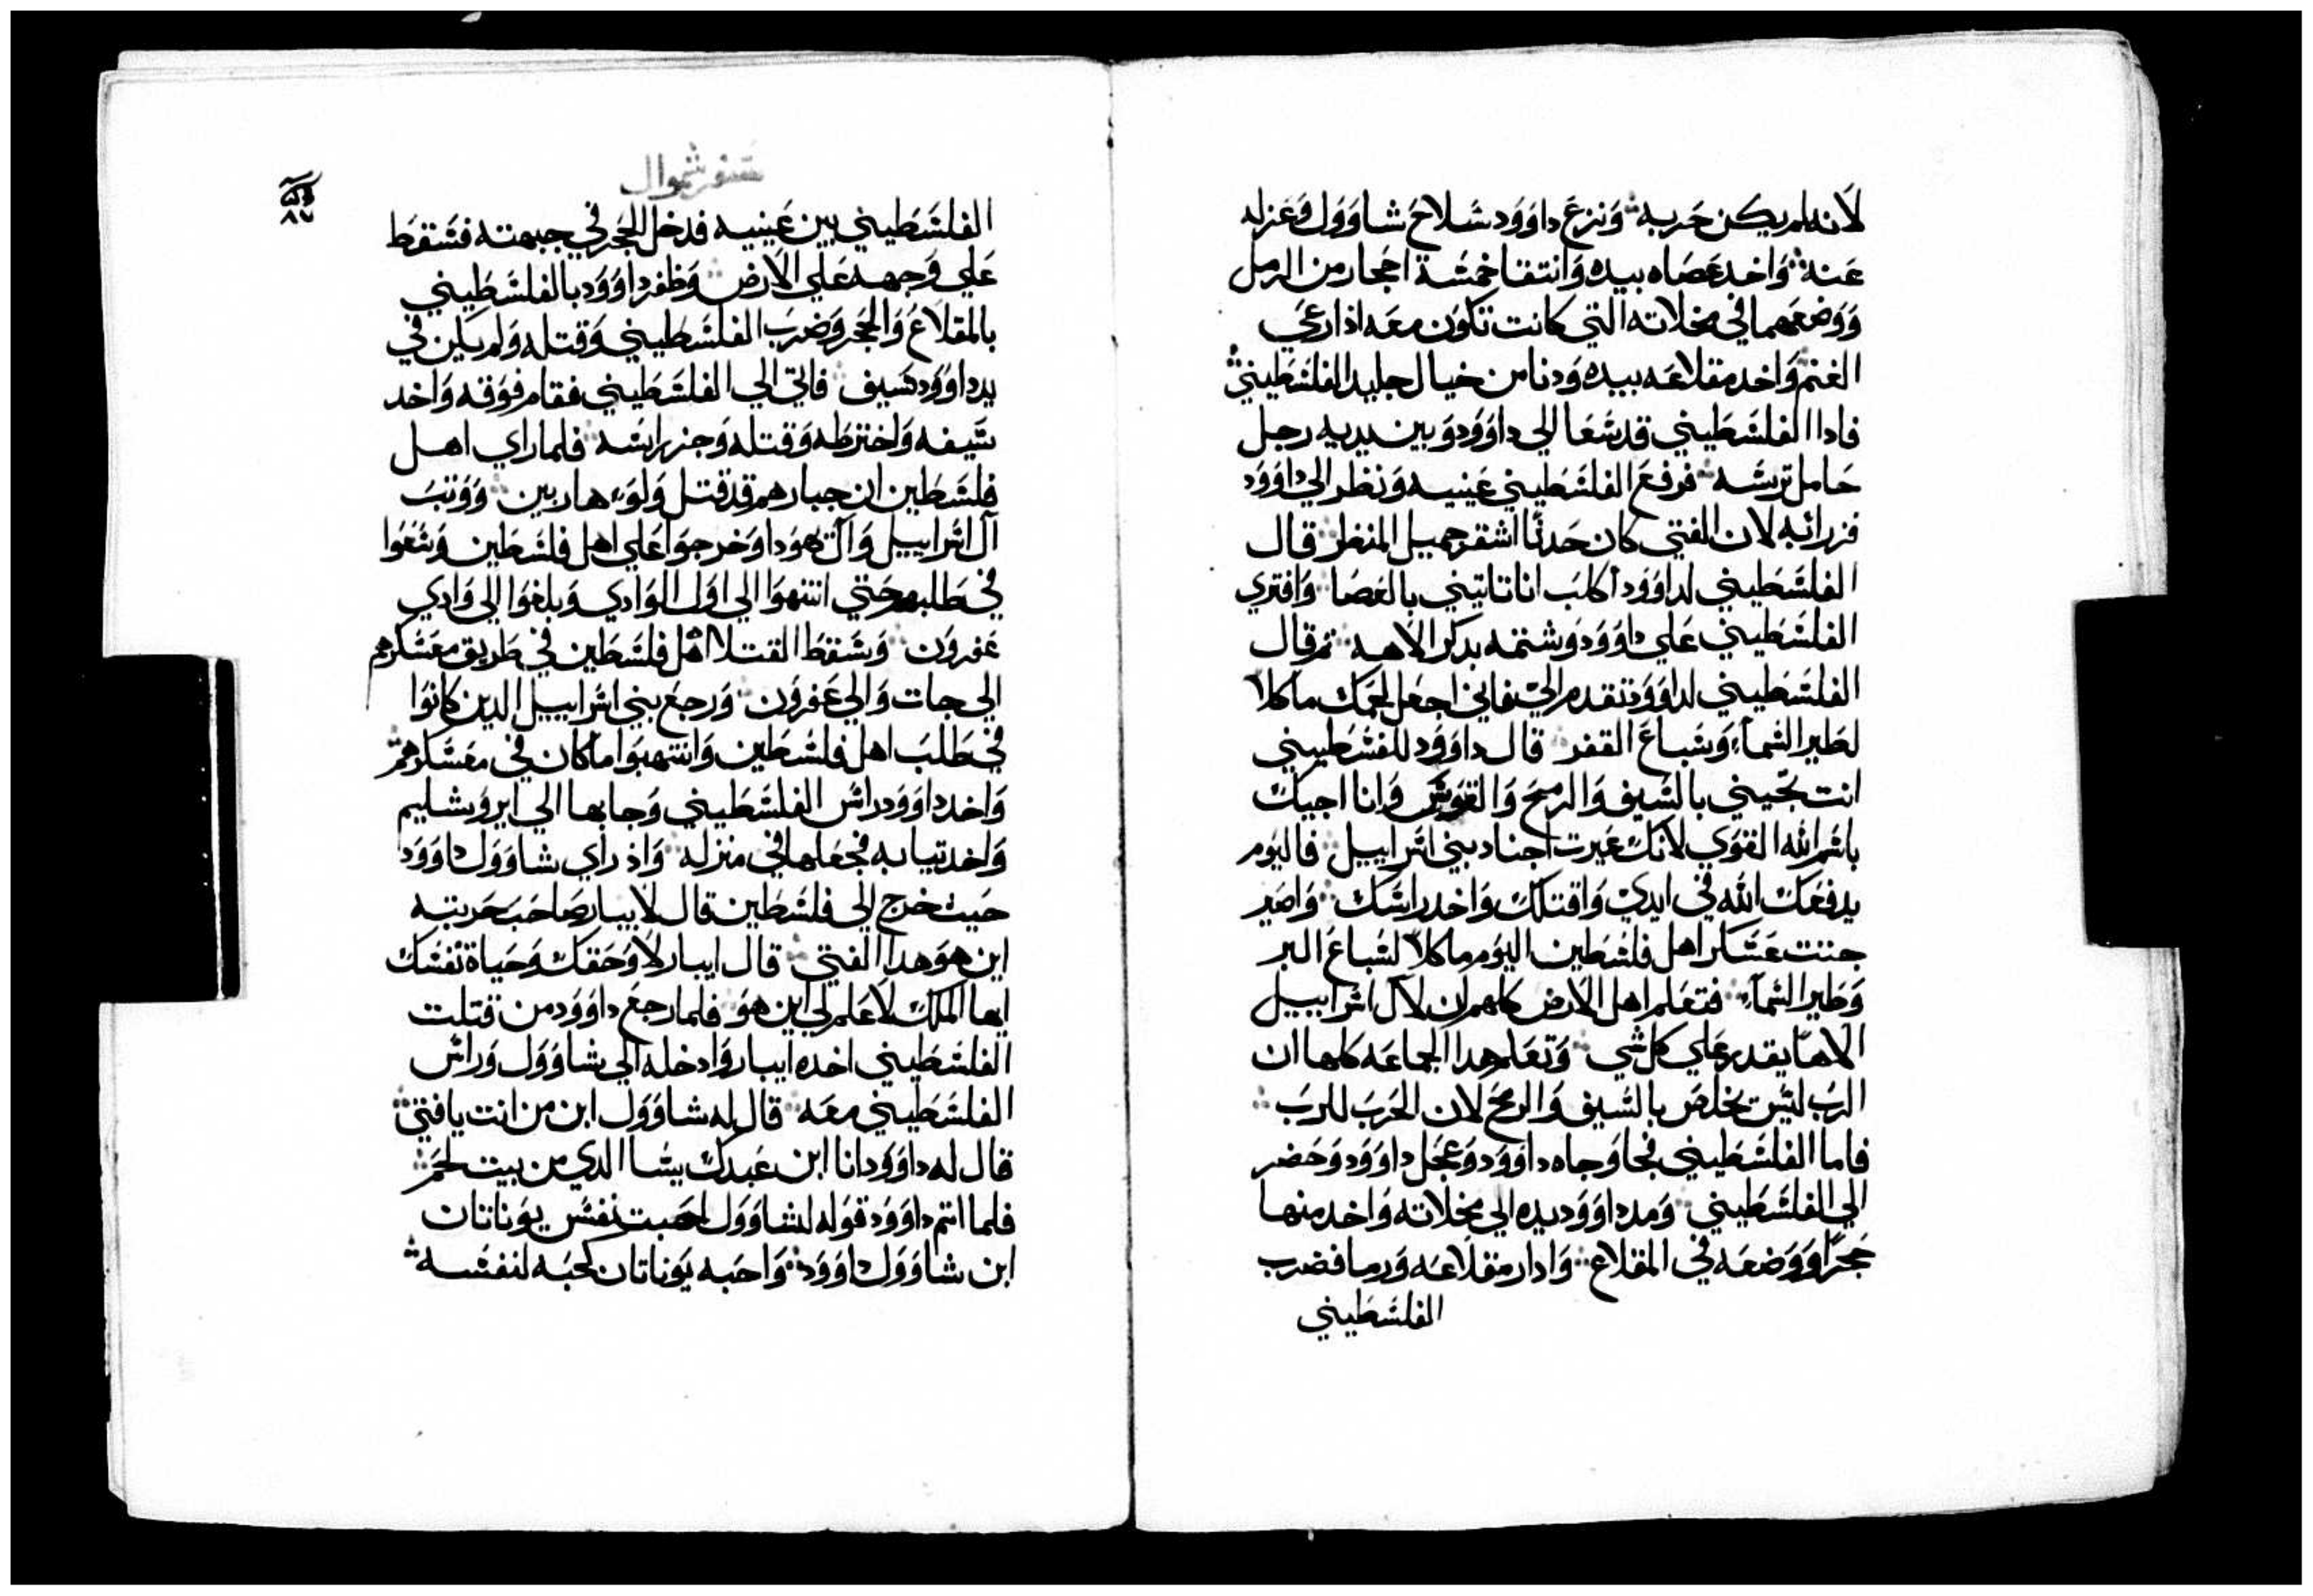 لانه لم يكن حربه ونزع داوود سلاح شاوول وعزله
عنه واخد عصاه بيده وانتقا خمسة احجار من الرمل
ووضعهما في مخلاته التي كانت تكون معه اذا رعي
الغنم واخد مقلاعه بيده ودنا من خيال جليد الفلسطيني
فادا الفلسطيني قد سعا الي داوود وبين يديه رجل
حامل ترسه فرفع الفلسطيني عينيه ونظر الي داوود
فزرا به لان الفتي كان حدثا اشقر جميل المنظر قال
الفلسطيني لداوود اكلب انا تاتيني بالعصا وافتري
الفلسطيني علي داوود وشتمه بدكر الاهه ثم قال
الفلسطيني لداوود تقدم الي فاني اجعل لحمك ماكلا
لطير السمآء وسباع القفر قال داوود للفسطيني
انت تجيني بالسيف والرمح والقوس وانا اجيك
باسم الله القوي لانك عيرت اجناد بني اسراييل فاليوم
يدفعك الله في ايدي واقتلك واخد راسك واصير
جتت عسكر اهل فلسطين اليوم ماكلا لسباع البر
وطير السمآء فتعلم اهل الارض كلهم ان لآل اسراييل
الاها يقدر علي كل شي وتعلم هدا الجماعه كلها ان
الرب ليس يخلص بالسيف والرمح لان الحرب للرب
فاما الفلسطيني فجا وجاه داوود وعجل داوود وحضر
الي الفلسطيني ومد داوود يده الي مخلاته واخد منها
حجرا ووضعه في المقلاع وادار مقلاعه ورما فضرب
الفلسطيني
سفر شموال
٨٧
الفلسطيني بين عينيه فدخل الحجر في جبهته فسقط
علي وجهه علي الارض وظفر داوود بالفلسطيني
بالمقلاع والحجر وضرب الفلسطيني وقتله ولم يكن في
يد داوود سيف فاتي الي الفلسطيني فقام فوقه واخد
سيفه واخترطه وقتله وجز راسه فلما راي اهل
فلسطين ان جبارهم قد قتل ولوا هاربين ووتب
آل اسراييل وآل يهودا وخرجوا علي اهل فلسطين وسعوا
في طلبهم حتي انتهوا الي اول الوادي وبلغوا الي وادي
عفرون وسقط القتلا اهل فلسطين في طريق معسكرهم
الي جات والي عفرون ورجع بني اسراييل الدين كانوا
في طلب اهل فلسطين وانتهبوا ما كان في معسكرهم
واخد داوود راس الفلسطيني وجابها الي ايروشليم
واخد تيابه فجعلها في منزله واذ راي شاوول داوود
حيث خرج الي فلسطين قال لابيبار صاحب حربته
ابن هو هدا الفتي قال ابيبار لا وحقك وحياة نفسك
ايها الملك لا علم لي ابن هو فلما رجع داوود من قتلت
الفلسطيني اخده ابيبار وادخله الي شاوول وراس
الفلسطيني معه قال له شاوول ابن من انت يا فتي
قال له داوود انا ابن عبدك يسا الدي من بيت لحم
فلما اتم داوود قوله لشاوول احبت نفس يوناتان
ابن شاوول داوود واحبه يوناتان كحبه لنفسه